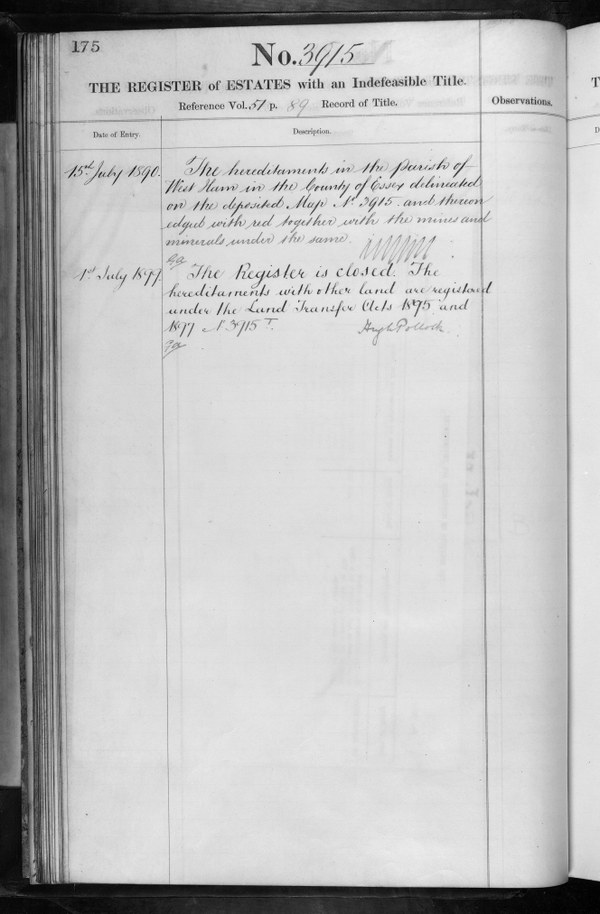 175
No. 3915
THE REGISTER of ESTATES with an Indefeasible Title.
Reference Vol. 51 p. 89 Record of Title.
Observations.
Date of Entry.
Description.
15th July 1890.
The hereditaments in the parish of
West Ham in the County of Essex delineated
on the deposited Map No. 3915 and thereon
edged with red together with the mines and
minerals under the same.
1st July 1877.
The Register is closed. The
hereditaments with other land are registered
under the Land Transfer Acts 1875 and
1877 No. 3915 T.
Hugh Pollock